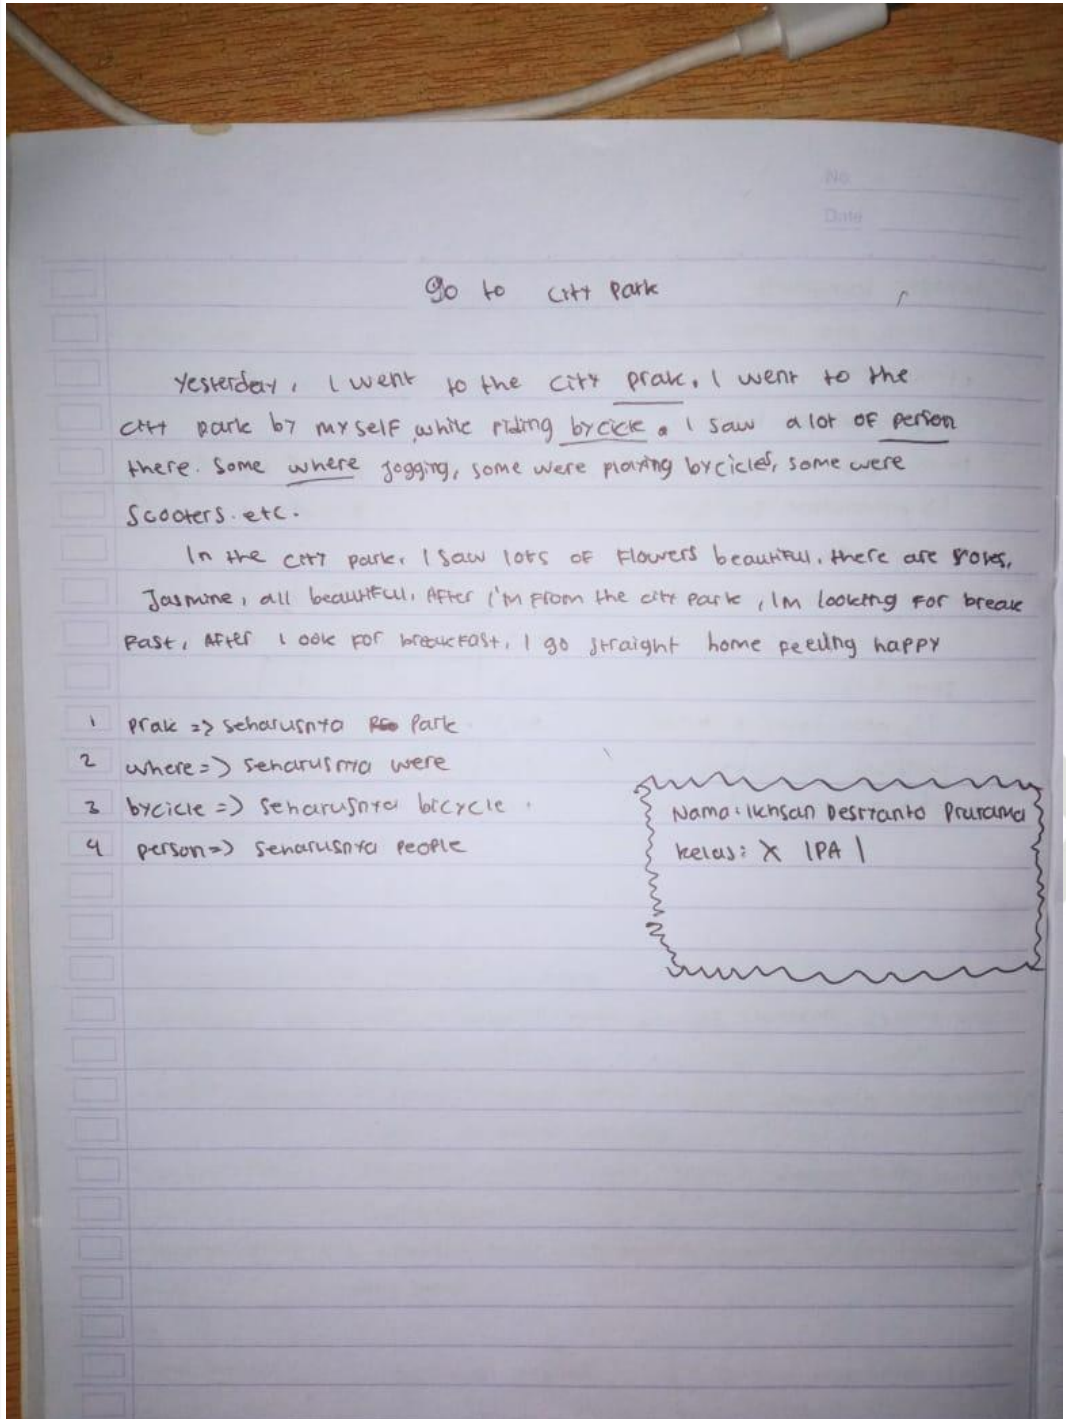 No
Date
Go to city park
Yesterday, I went to the city prak, I went to the
city park by my self while riding bycicle. I saw a lot of person
there. Some where jogging, some were playing bycicles, some were
Scooters. etc.
In the city park, I saw lots of flowers beautiful. there are roses,
Jasmine, all beautiful. After I'm from the city park, I'm looking for break
fast, After look for breakfast, I go straight home feeling happy
1 prak => seharusnya Park
2 where => seharusnya were
3 bycicle => seharusnya bicycle
4 person => seharusnya people
Nama: Ikhsan Desryanto
Kelas: X IPA 1